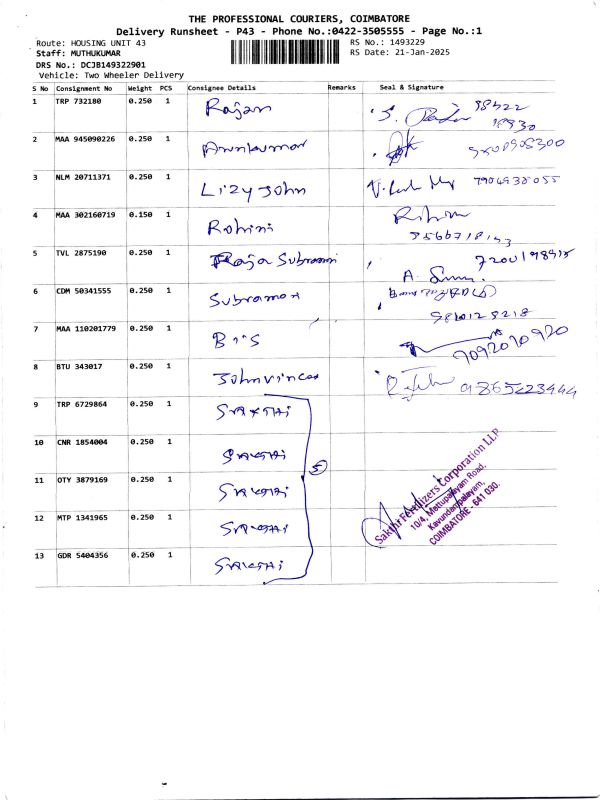 THE PROFESSIONAL COURIERS, COIMBATORE
Delivery Runsheet - P43 - Phone No.:0422-3505555 - Page No.:1
Route: HOUSING UNIT 43 RS No.: 1493229
Staff: MUTHUKUMAR RS Date: 21-Jan-2025
DRS No.: DCJB149322901
Vehicle: Two Wheeler Delivery
S No Consignment No Weight PCS Consignee Details Remarks Seal & Signature
1 TRP 732180 0.250 1 Rajan
2 MAA 945090226 0.250 1 Arunkumar
3 NLM 20711371 0.250 1 Lizy John 7904938055
4 MAA 302160719 0.150 1 Rohini
5 TVL 2875190 0.250 1 Raja Subramani
6 CDM 50341555 0.250 1 Subraman
7 MAA 110201779 0.250 1 BIS 7092070920
8 BTU 343017 0.250 1 Johnvincea 9865223444
9 TRP 6729864 0.250 1 SAKTHI
10 CNR 1854004 0.250 1 SAKTHI
5
11 OTY 3879169 0.250 1 SAKTHI
12 MTP 1341965 0.250 1 SAKTHI
13 GDR 5404356 0.250 1 SAKTHI
Sakthi Fertilizers Corporation LLP
10/4, Mettupalayam Road,
Kavundampalayam,
COIMBATORE - 641 030.